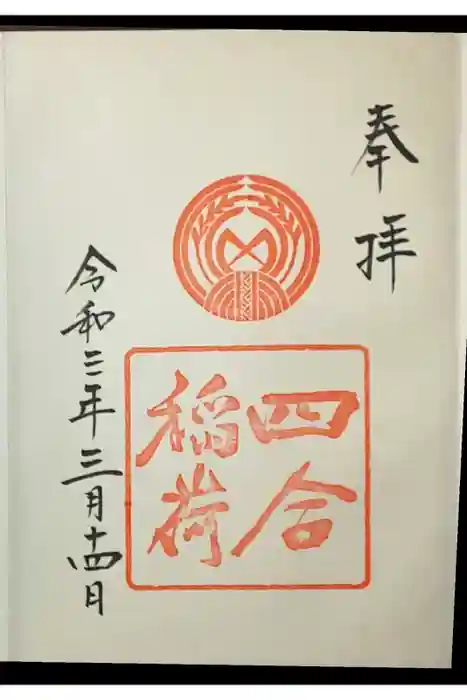 奉拝
四合
稲荷
令和二年三月十四日